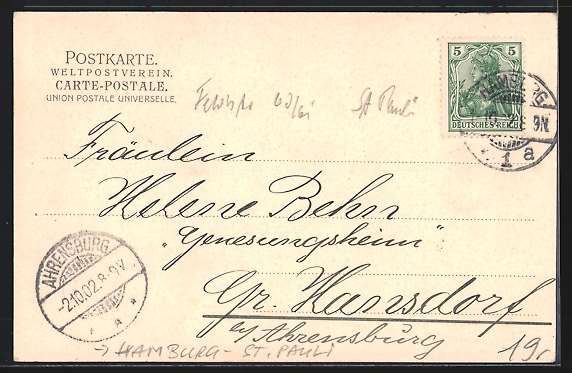 POSTKARTE.
WELTPOSTVEREIN.
CARTE-POSTALE.
UNION POSTALE UNIVERSELLE.
5 5
DEUTSCHES REICH
HAMBURG
1 a
St Pauli
Fräulein
Helene Behn
„Genesungsheim"
Gr. Hansdorf
b/ Ahrensburg
AHRENSBURG
-2.10.02.8-9V.
→ HAMBURG - ST. PAULI
19,-